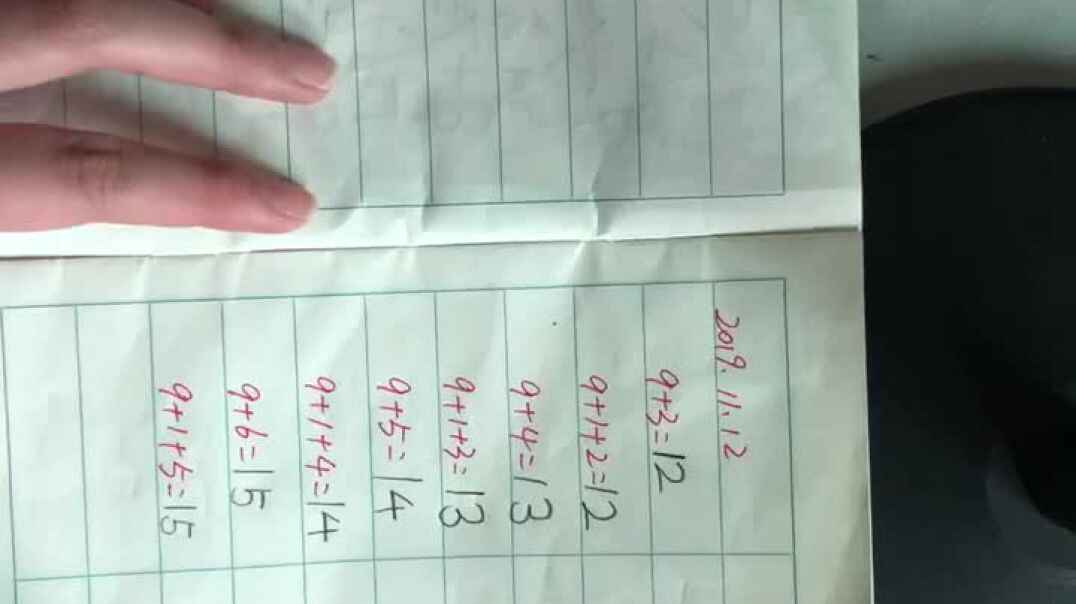 2019.11.12
9+3=12
9+1+2=12
9+4=13
9+1+3=13
9+5=14
9+1+4=14
9+6=15
9+1+5=15